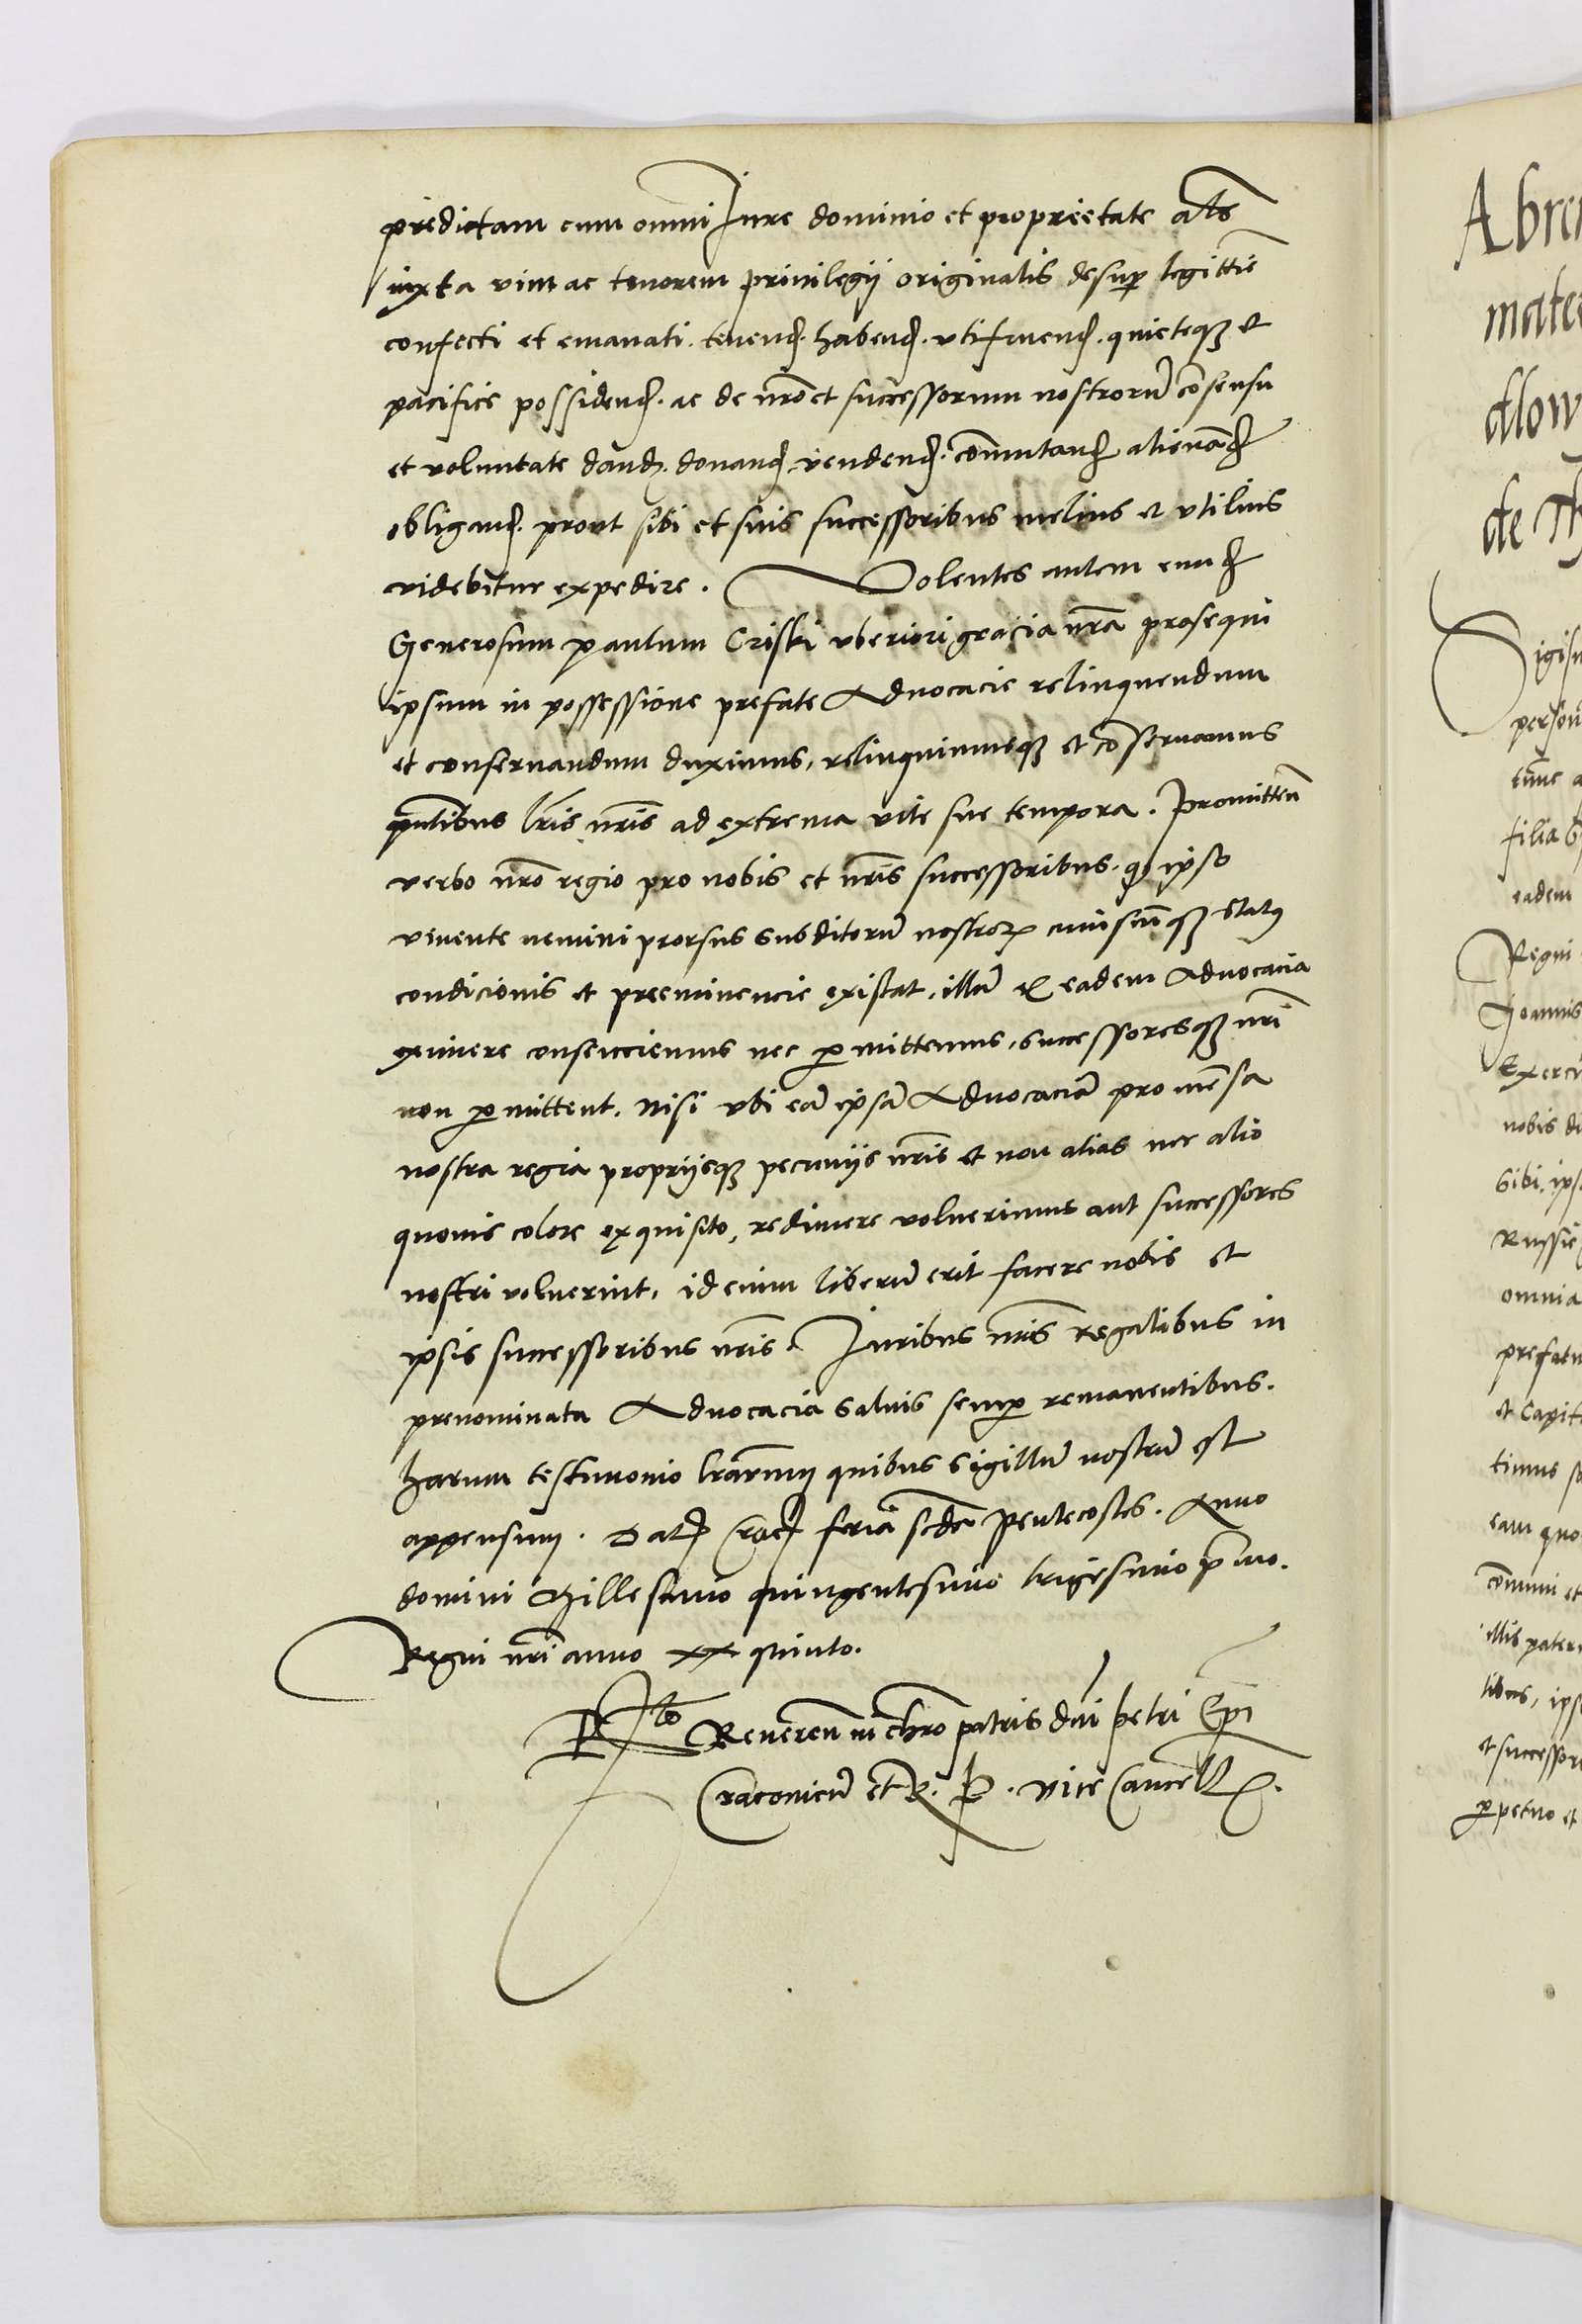 predictam cum omni Jure dominio et proprietate ac
iuxta vim ac tenorem privilegij originalis desup legittie
confecti et emanati. tenend. habend. utifruend. quieteqz et
pacifice possidend. ac de nro et successorum nostroru consensu
et voluntate dand. donand. vendend. comutand alienand
obligand. prout sibi et suis successoribus melius et utilius
videbitur expedire. Volentes autem eund
Generosum paulum Criski uberiori gracia nra prosequi
ipsum in possessione prefate Advocacie relinquendum
et conservandum duximus, relinquimusqz et coservamus
pntibus lris nris ad extrema vite sue tempora. Promitten
verbo nro regio pro nobis et nris successoribus. qz ipso
vivente nemini prorsus subditoru nostror cuiuscuqz status
condicionis et preeminencie existat, illu ex eadem Advocacia
eximere consenciemus nec pmittemus, successoresqz nri
non pmittent. Nisi ubi ea ipsa Advocacia pro mesa
nostra regia proprijsqz pecunijs nris et non alias nec alio
quovis colore exquisito, redimere voluerimus aut successores
nostri voluerint, id enim liberu erit facere nobis et
ipsis successoribus nris. Juribus nris regalibus in
prenominata Advocacia salvis semp remanentibus.
harum testimonio lrarum quibus sigillu nostru est
appensum. Dat Crac feria scda Pentecostes. Anno
domini Millesimo quingentesimo trigesimo pmo.
Regni nri anno xx quinto.
Rlo Reveren in chro patris dni Petri Epi
Cracovien et R. P. vice Cancell.
A bre
mate
dlow
de
Sigis
perso
tunc a
filia
eadem
Regni
Joannis
Exerci
nobis di
sibi, ips
Russie
omnia
prefatu
et Capit
timus s
eam quo
comuni et
illis pater
libus, ips
et successor
ppetuo et